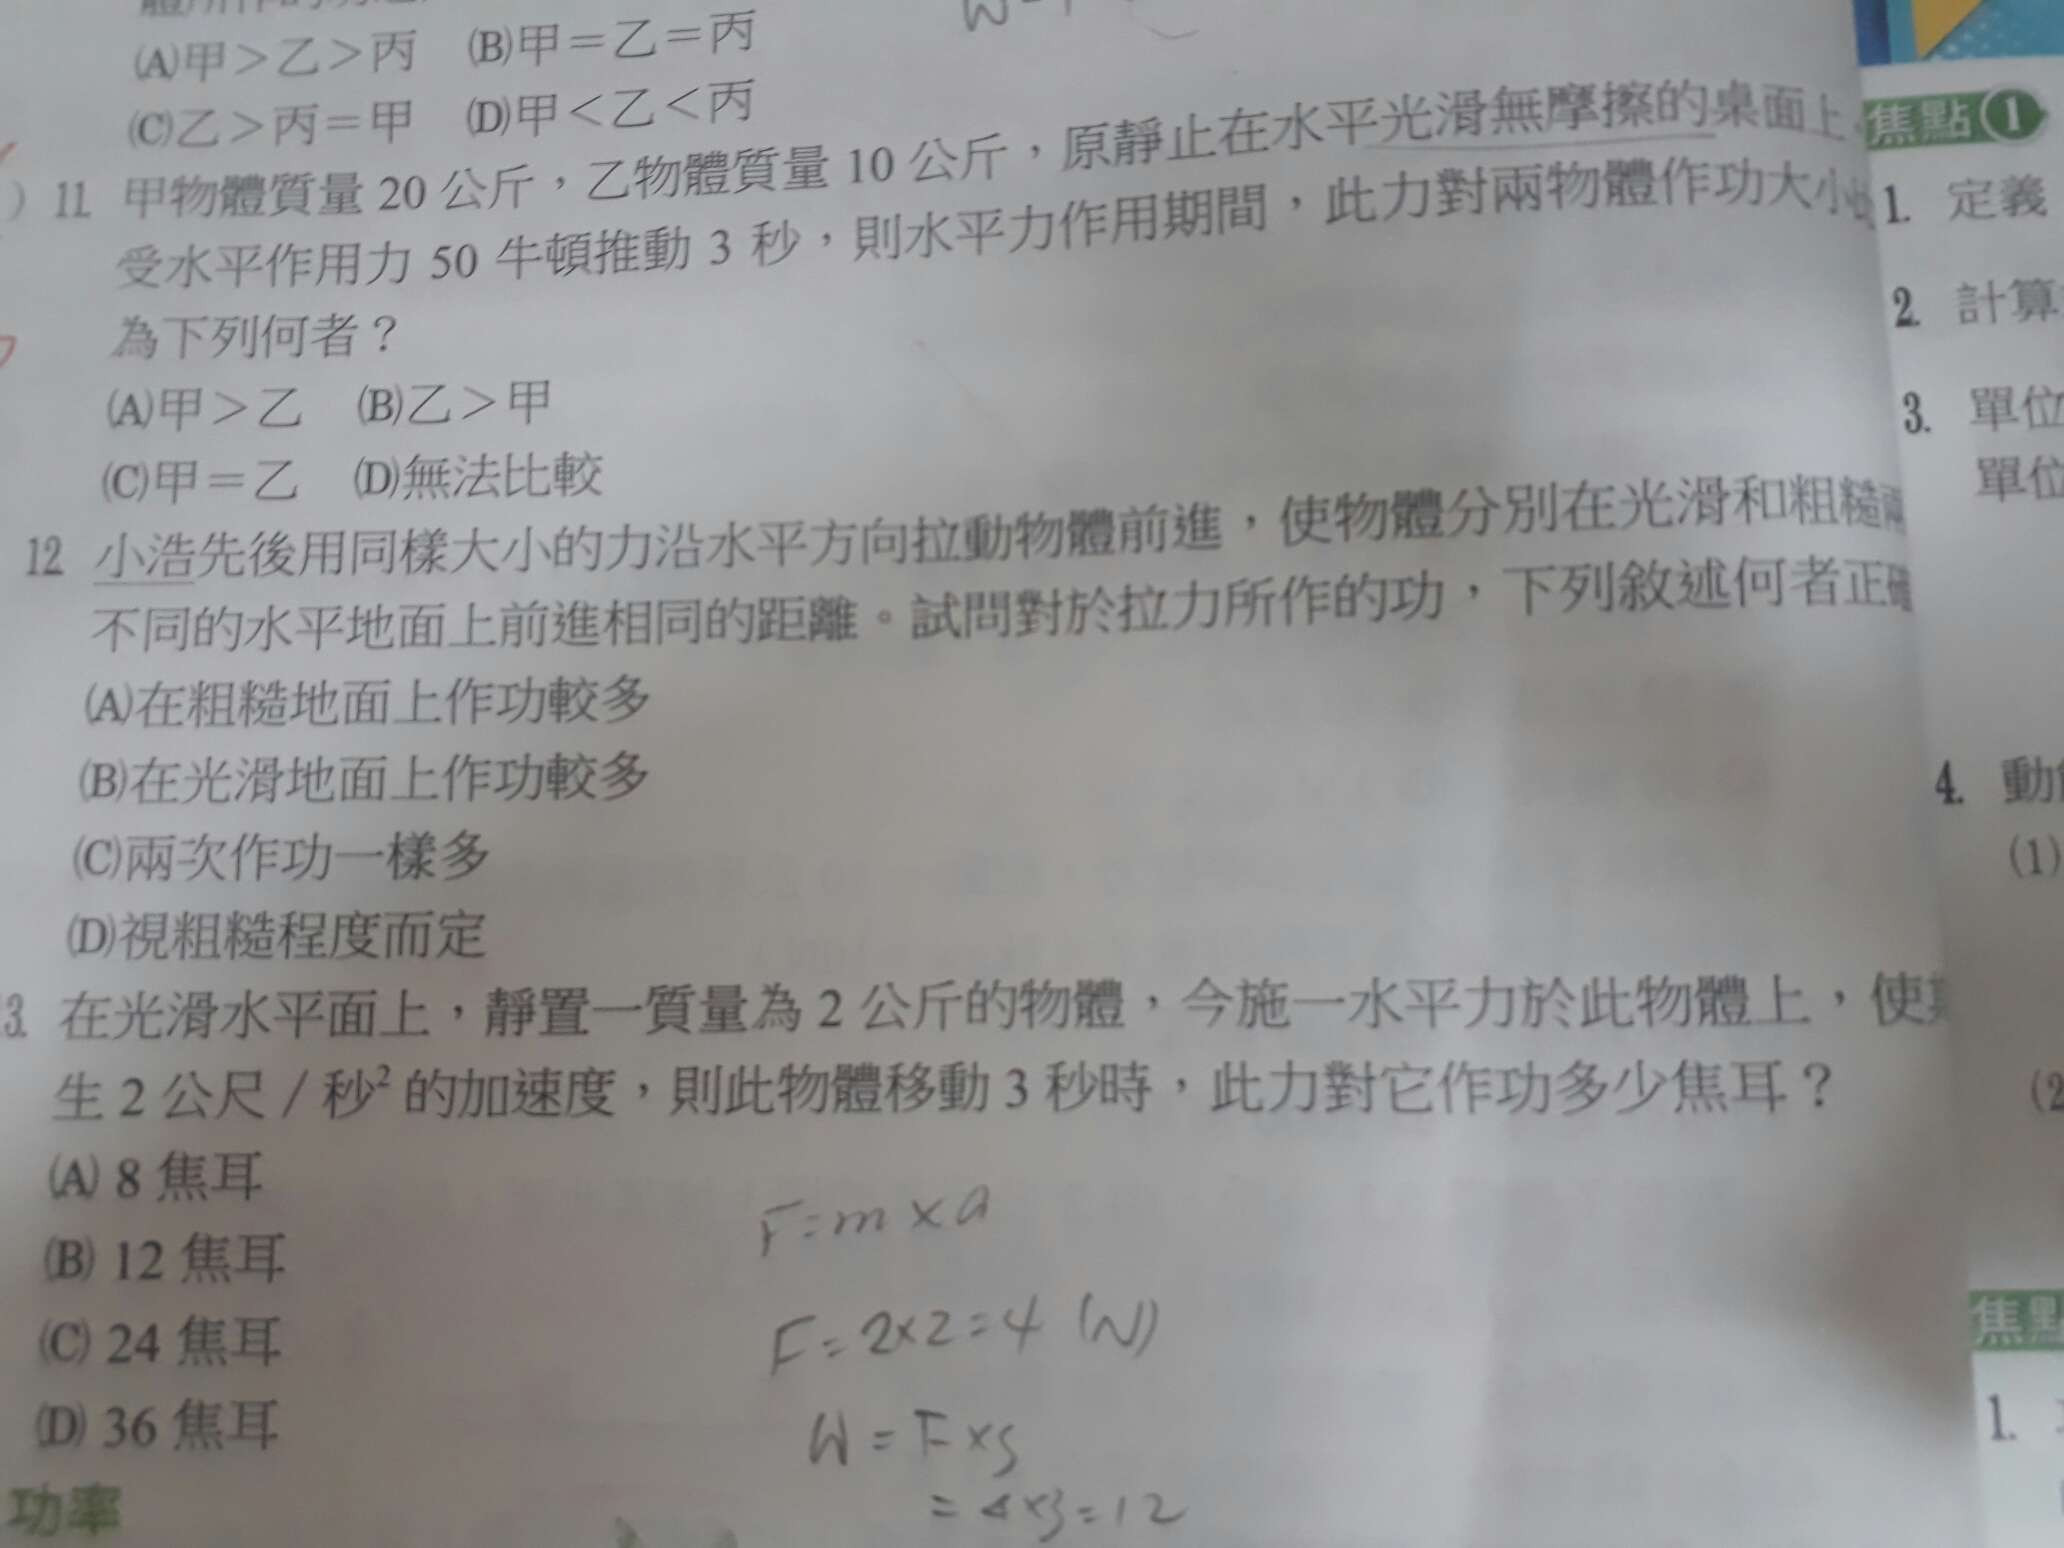 (A)甲＞乙＞丙 (B)甲＝乙＝丙
(C)乙＞丙＝甲 (D)甲＜乙＜丙
) 11. 甲物體質量 20 公斤，乙物體質量 10 公斤，原靜止在水平光滑無摩擦的桌面上
受水平作用力 50 牛頓推動 3 秒，則水平力作用期間，此力對兩物體作功大小
為下列何者？
(A)甲＞乙 (B)乙＞甲
(C)甲＝乙 (D)無法比較
12. 小浩先後用同樣大小的力沿水平方向拉動物體前進，使物體分別在光滑和粗糙兩
不同的水平地面上前進相同的距離。試問對於拉力所作的功，下列敘述何者正確
(A)在粗糙地面上作功較多
(B)在光滑地面上作功較多
(C)兩次作功一樣多
(D)視粗糙程度而定
3. 在光滑水平面上，靜置一質量為 2 公斤的物體，今施一水平力於此物體上，使
生 2 公尺／秒² 的加速度，則此物體移動 3 秒時，此力對它作功多少焦耳？
(A) 8 焦耳
(B) 12 焦耳
(C) 24 焦耳
(D) 36 焦耳
F=m×a
F=2×2=4 (N)
W=F×S
=4×3=12
功率
焦點 1
1. 定義
2. 計算
3. 單位
單位
4. 動
(1)
(2
焦點
1.